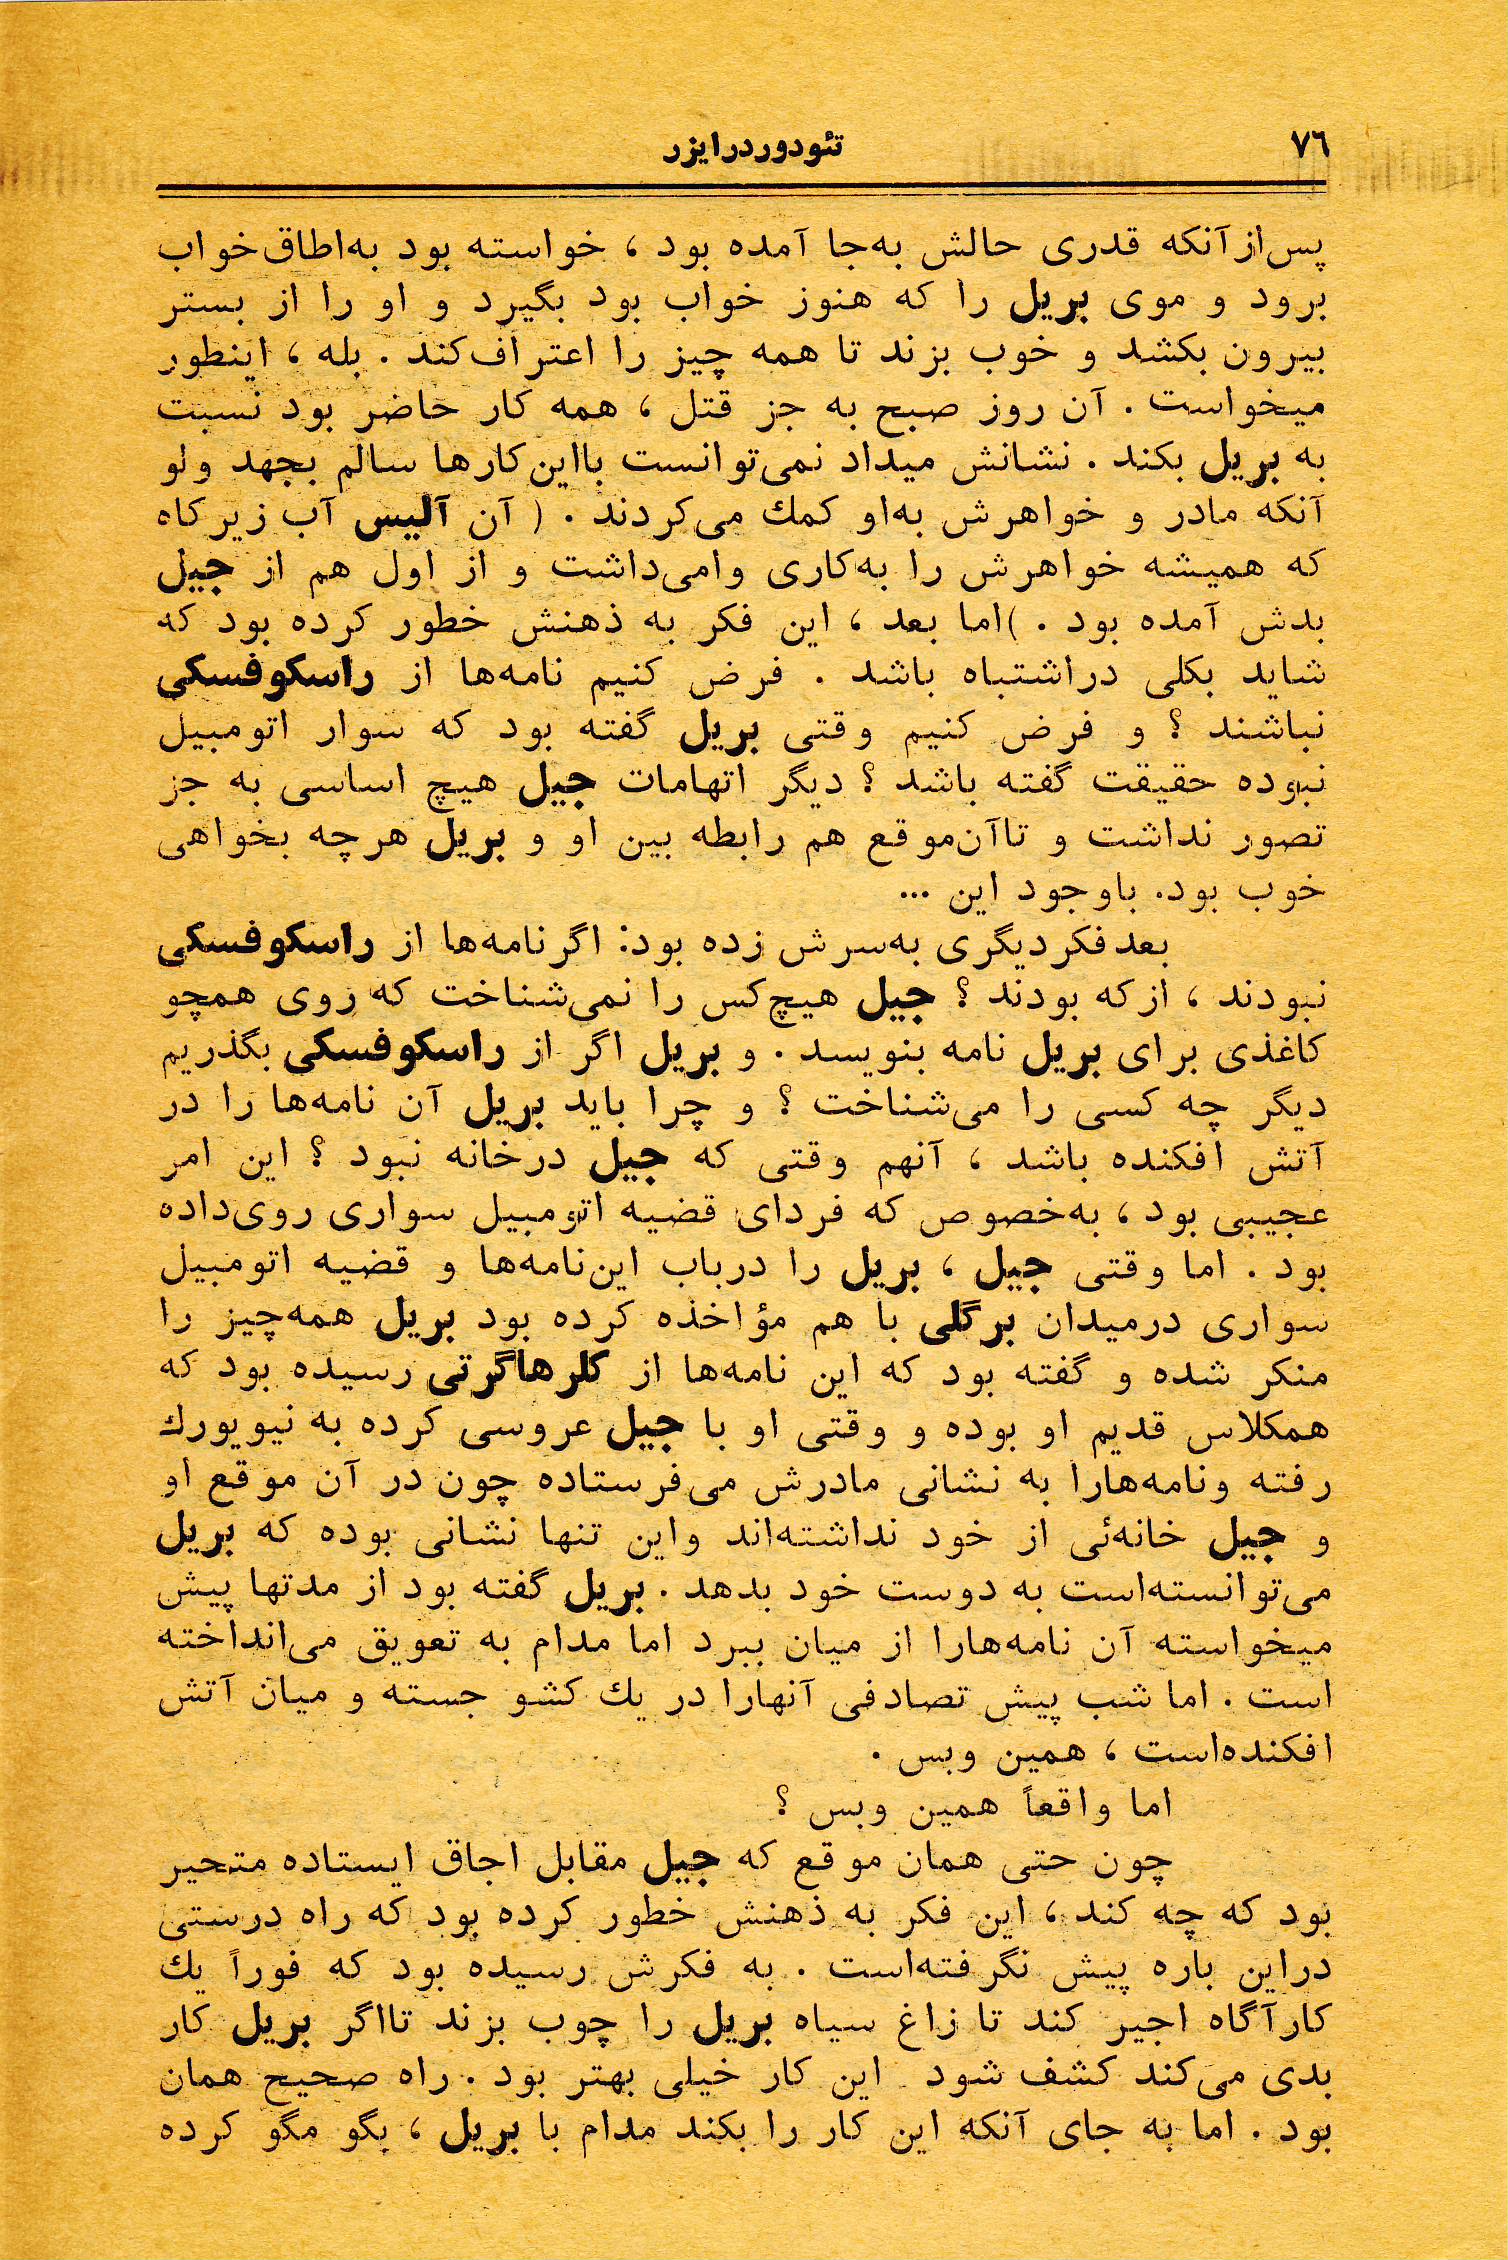 ٧٦
تئودوردرایزر
پس‌ازآنکه قدری حالش به‌جا آمده بود ، خواسته بود به‌اطاق‌خواب
برود و موی بریل را که هنوز خواب بود بگیرد و او را از بستر
بیرون بکشد و خوب بزند تا همه چیز را اعتراف‌کند . بله ، اینطور
میخواست . آن روز صبح به جز قتل ، همه کار حاضر بود نسبت
به بریل بکند . نشانش میداد نمی‌توانست بااین‌کارها سالم بجهد ولو
آنکه مادر و خواهرش به‌او کمك می‌کردند . ( آن آلیس آب زیرکاه
که همیشه خواهرش را به‌کاری وامی‌داشت و از اول هم از جیل
بدش آمده بود . )اما بعد ، این فکر به ذهنش خطور کرده بود که
شاید بکلی دراشتباه باشد . فرض کنیم نامه‌ها از راسکوفسکی
نباشند ؟ و فرض کنیم وقتی بریل گفته بود که سوار اتومبیل
نبوده حقیقت گفته باشد ؟ دیگر اتهامات جیل هیچ اساسی به جز
تصور نداشت و تاآن‌موقع هم رابطه بین او و بریل هرچه بخواهی
خوب بود. باوجود این ...
بعدفکردیگری به‌سرش زده بود: اگرنامه‌ها از راسکوفسکی
نبودند ، ازکه بودند ؟ جیل هیچ‌کس را نمی‌شناخت که روی همچو
کاغذی برای بریل نامه بنویسد . و بریل اگر از راسکوفسکی بگذریم
دیگر چه کسی را می‌شناخت ؟ و چرا باید بریل آن نامه‌ها را در
آتش افکنده باشد ، آنهم وقتی که جیل درخانه نبود ؟ این امر
عجیبی بود ، به‌خصوص که فردای قضیه اتومبیل سواری روی‌داده
بود . اما وقتی جیل ، بریل را درباب این‌نامه‌ها و قضیه اتومبیل
سواری درمیدان برگلی با هم مؤاخذه کرده بود بریل همه‌چیز را
منکر شده و گفته بود که این نامه‌ها از کلرهاگرتی رسیده بود که
همکلاس قدیم او بوده و وقتی او با جیل عروسی کرده به نیویورك
رفته ونامه‌هارا به نشانی مادرش می‌فرستاده چون در آن موقع او
و جیل خانه‌ئی از خود نداشته‌اند واین تنها نشانی بوده که بریل
می‌توانسته‌است به دوست خود بدهد . بریل گفته بود از مدتها پیش
میخواسته آن نامه‌هارا از میان ببرد اما مدام به تعویق می‌انداخته
است . اما شب پیش تصادفی آنهارا در یك کشو جسته و میان آتش
افکنده‌است ، همین وبس .
اما واقعاً همین وبس ؟
چون حتی همان موقع که جیل مقابل اجاق ایستاده متحیر
بود که چه کند ، این فکر به ذهنش خطور کرده بود که راه درستی
دراین باره پیش نگرفته‌است . به فکرش رسیده بود که فوراً یك
کارآگاه اجیر کند تا زاغ سیاه بریل را چوب بزند تااگر بریل کار
بدی می‌کند کشف شود این کار خیلی بهتر بود . راه صحیح همان
بود . اما به جای آنکه این کار را بکند مدام با بریل ، بگو مگو کرده